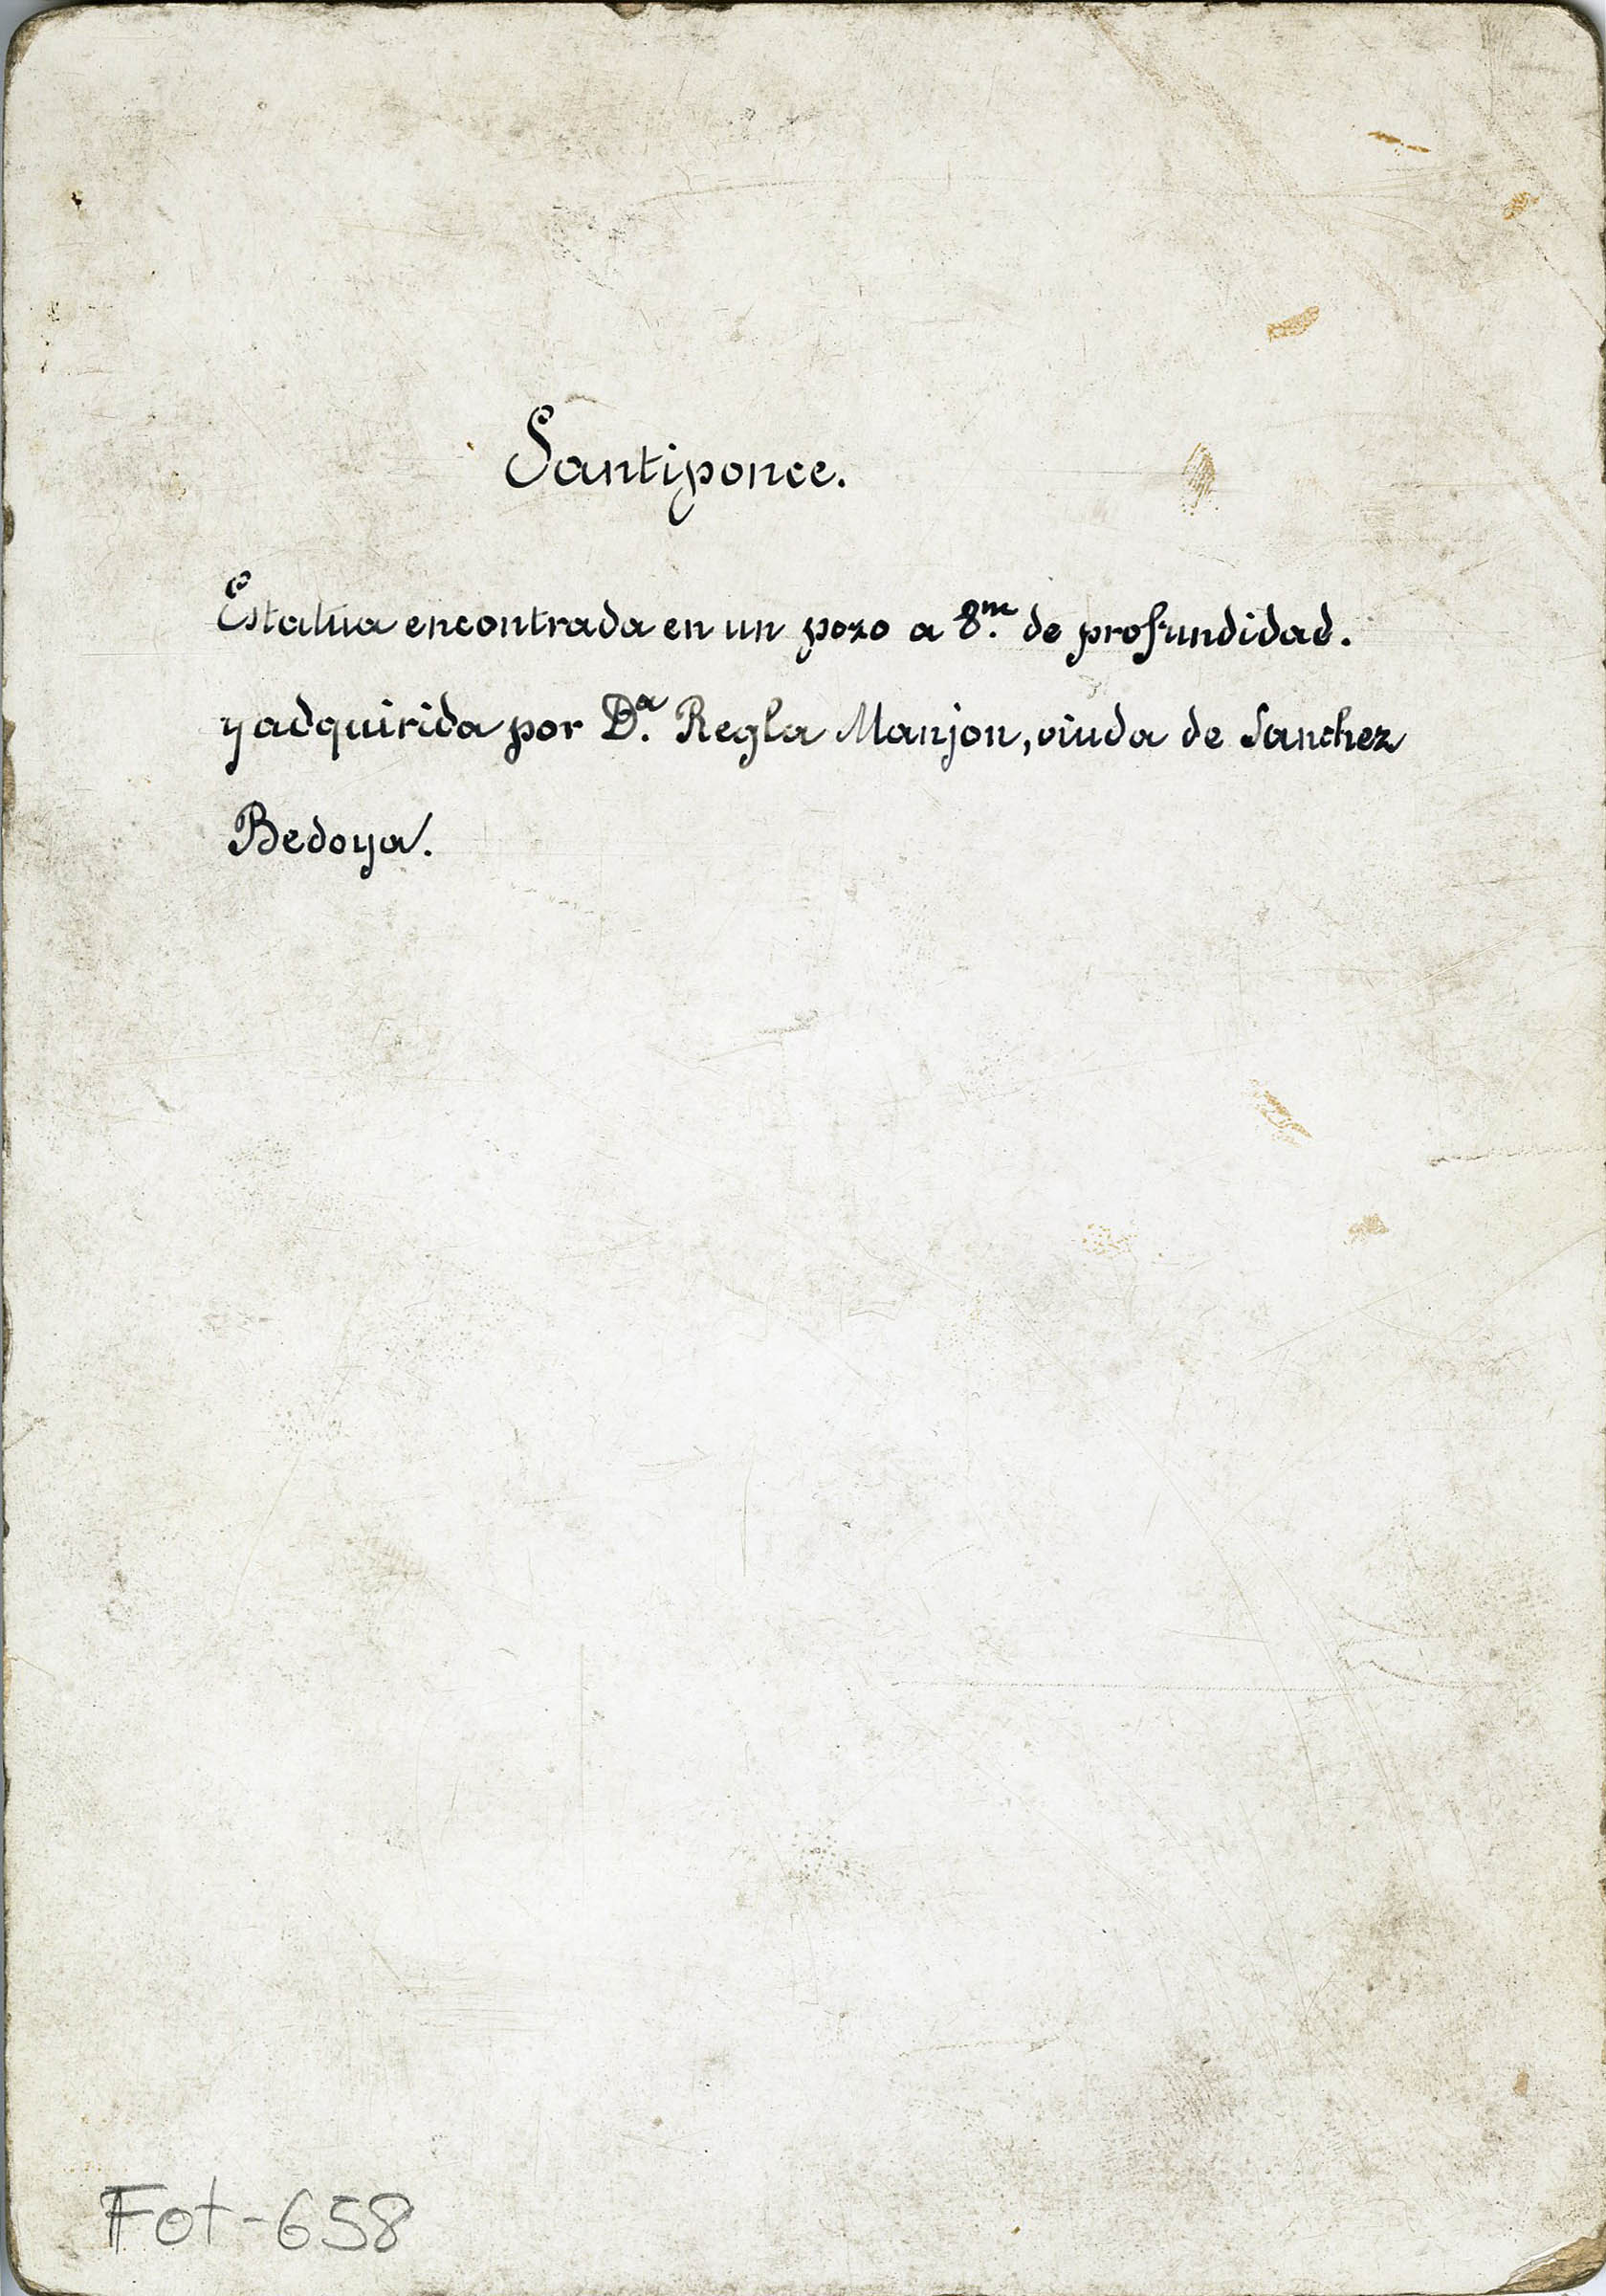 Santiponce.
Estatua encontrada en un pozo a 8.ᵐ de profundidad.
y adquirida por D.ª Regla Manjon, viuda de Sanchez
Bedoya.
Fot-658